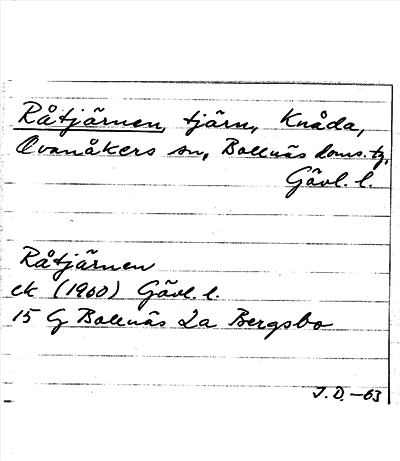 Råtjärnen, tjärn, Knåda,
Ovanåkers sn, Bollnäs doms. tg,
Gävl. l.
Råtjärnen
ek (1960) Gävl. l.
15 G Bollnäs 2a Bergsbo
J. D. -63